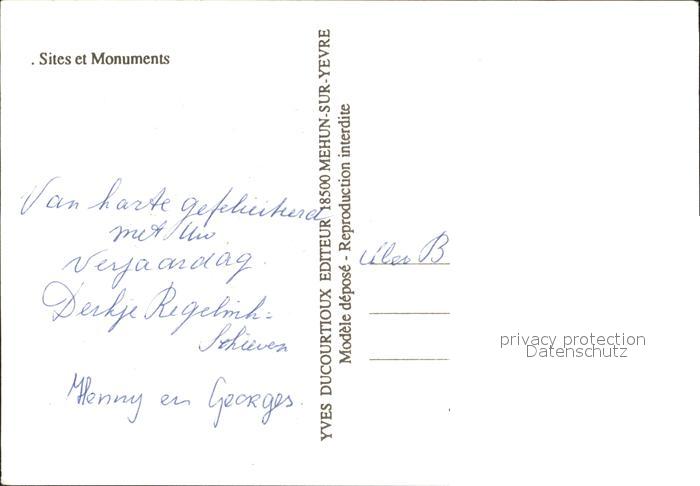 . Sites et Monuments
Van harte gefeliciteerd
met Uw
verjaardag.
Derkje Regelink=
Schieven
Henny en Georges.
YVES DUCOURTIOUX EDITEUR 18500 MEHUN-SUR-YEVRE
Modèle déposé - Reproduction interdite
B
privacy protection
Datenschutz